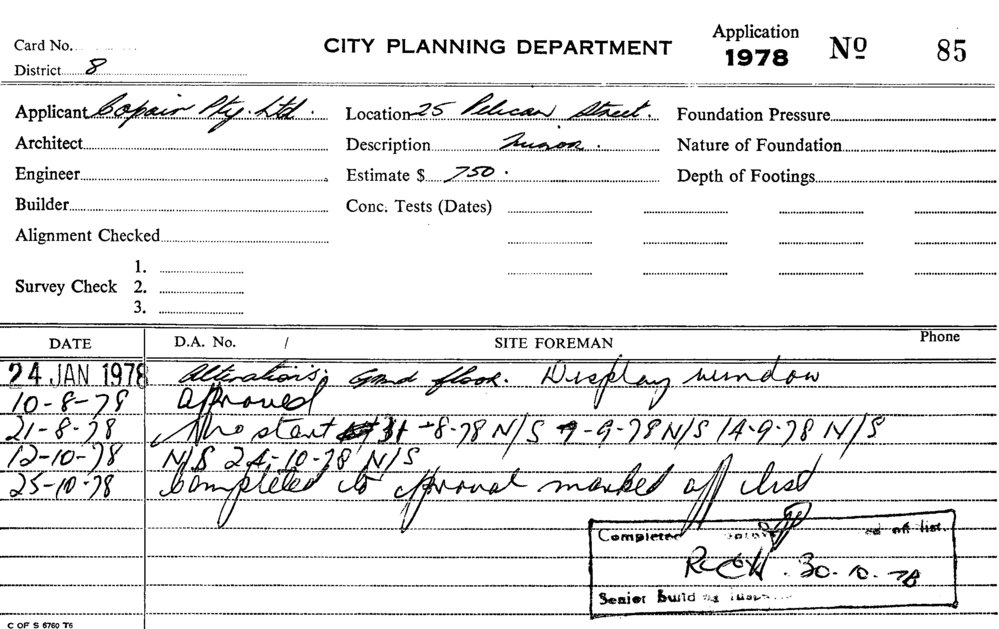 Card No.
CITY PLANNING DEPARTMENT
Application 1978 No 85
District 8
Applicant Copair Pty. Ltd. Location 25 Pelican Street. Foundation Pressure
Architect Description Minor. Nature of Foundation
Engineer Estimate $ 750. Depth of Footings
Builder Conc. Tests (Dates)
Alignment Checked
1.
Survey Check 2.
3.
DATE D.A. No. / SITE FOREMAN Phone
24 JAN 1978 Alterations. Grnd floor. Display window
10-8-78 Approved
21-8-78 No start 31-8-78 N/S 7-9-78 N/S 14-9-78 N/S
12-10-78 N/S 24-10-78 N/S
25-10-78 Completed to approval marked off list
Completed off list.
30-10-78
Senior Building
C OF S 6760 T6